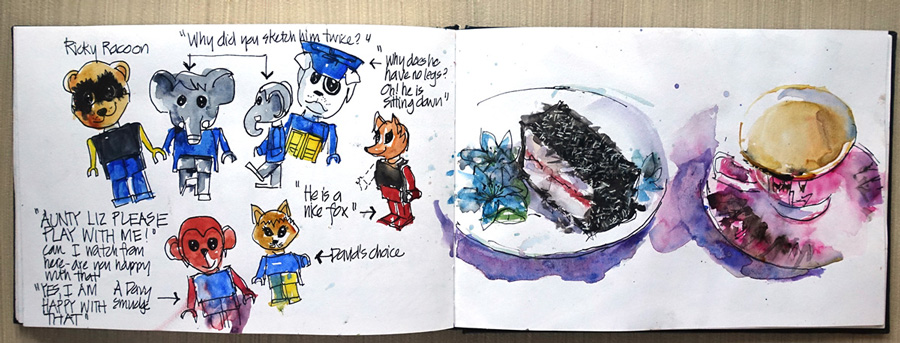 Ricky Racoon
"Why did you sketch him twice?"
"Why does he
have no legs?
Oh! he is
sitting down"
"He is a
nice fox"
"AUNTY LIZ PLEASE
PLAY WITH ME!"
Can I watch from
here - are you happy
with that
"YES I AM
HAPPY WITH
THAT"
A Davy
Smudge
David's choice